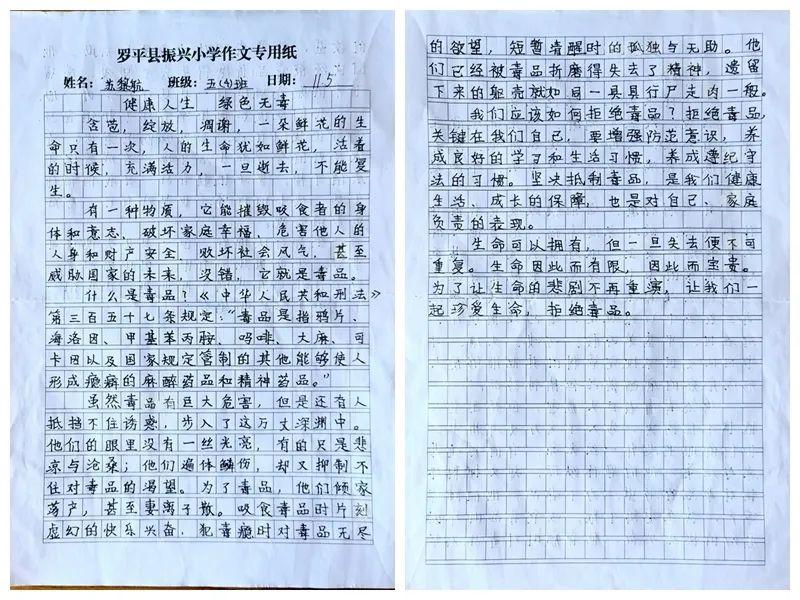 罗平县振兴小学作文专用纸
姓名：苏黎航 班级：五(4)班 日期：11.5
健康人生 绿色无毒
含苞，绽放，凋谢，一朵鲜花的生
命只有一次，人的生命犹如鲜花，活着
的时候，充满活力，一旦逝去，不能复
生。
有一种物质，它能摧毁吸食者的身
体和意志、破坏家庭幸福、危害他人的
人身和财产安全、败坏社会风气，甚至
威胁国家的未来，没错，它就是毒品。
什么是毒品？《中华人民共和刑法》
第三百五十七条规定：“毒品是指鸦片、
海洛因、甲基苯丙胺、吗啡、大麻、可
卡因以及国家规定管制的其他能够使人
形成瘾癖的麻醉药品和精神药品。”
虽然毒品有巨大危害，但是还有人
抵挡不住诱惑，步入了这万丈深渊中。
他们的眼里没有一丝光亮，有的只是悲
凉与沧桑；他们遍体鳞伤，却又抑制不
住对毒品的渴望。为了毒品，他们倾家
荡产，甚至妻离子散。吸食毒品时片刻
虚幻的快乐兴奋，犯毒瘾时对毒品无尽
的欲望，短暂清醒时的孤独与无助。他
们已经被毒品折磨得失去了精神，遗留
下来的躯壳就如同一具具行尸走肉一般。
我们应该如何拒绝毒品？拒绝毒品，
关键在我们自己，要增强防范意识，养
成良好的学习和生活习惯，养成遵纪守
法的习惯。坚决抵制毒品，是我们健康
生活、成长的保障，也是对自己、家庭
负责的表现。
生命可以拥有，但一旦失去便不可
重复。生命因此而有限，因此而宝贵。
为了让生命的悲剧不再重演，让我们一
起珍爱生命，拒绝毒品。